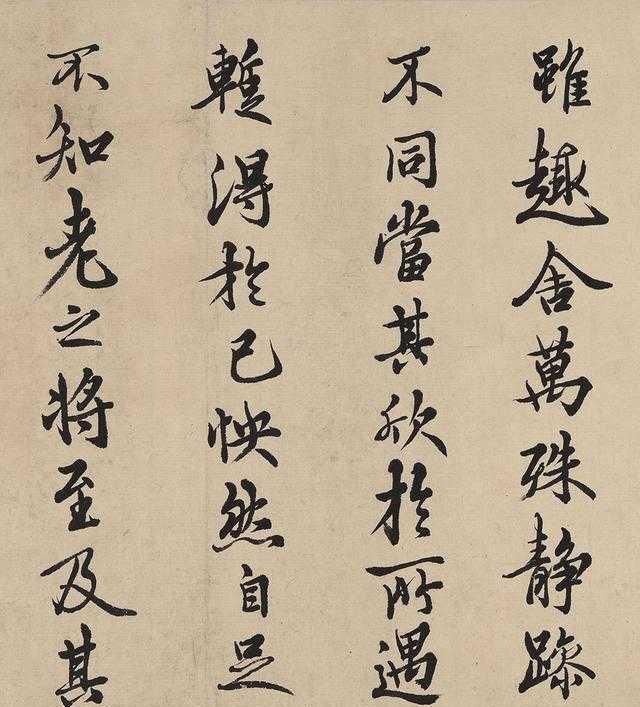 雖趣舍萬殊静躁
不同當其欣於所遇
暫得於己怏然自足
不知老之將至及其